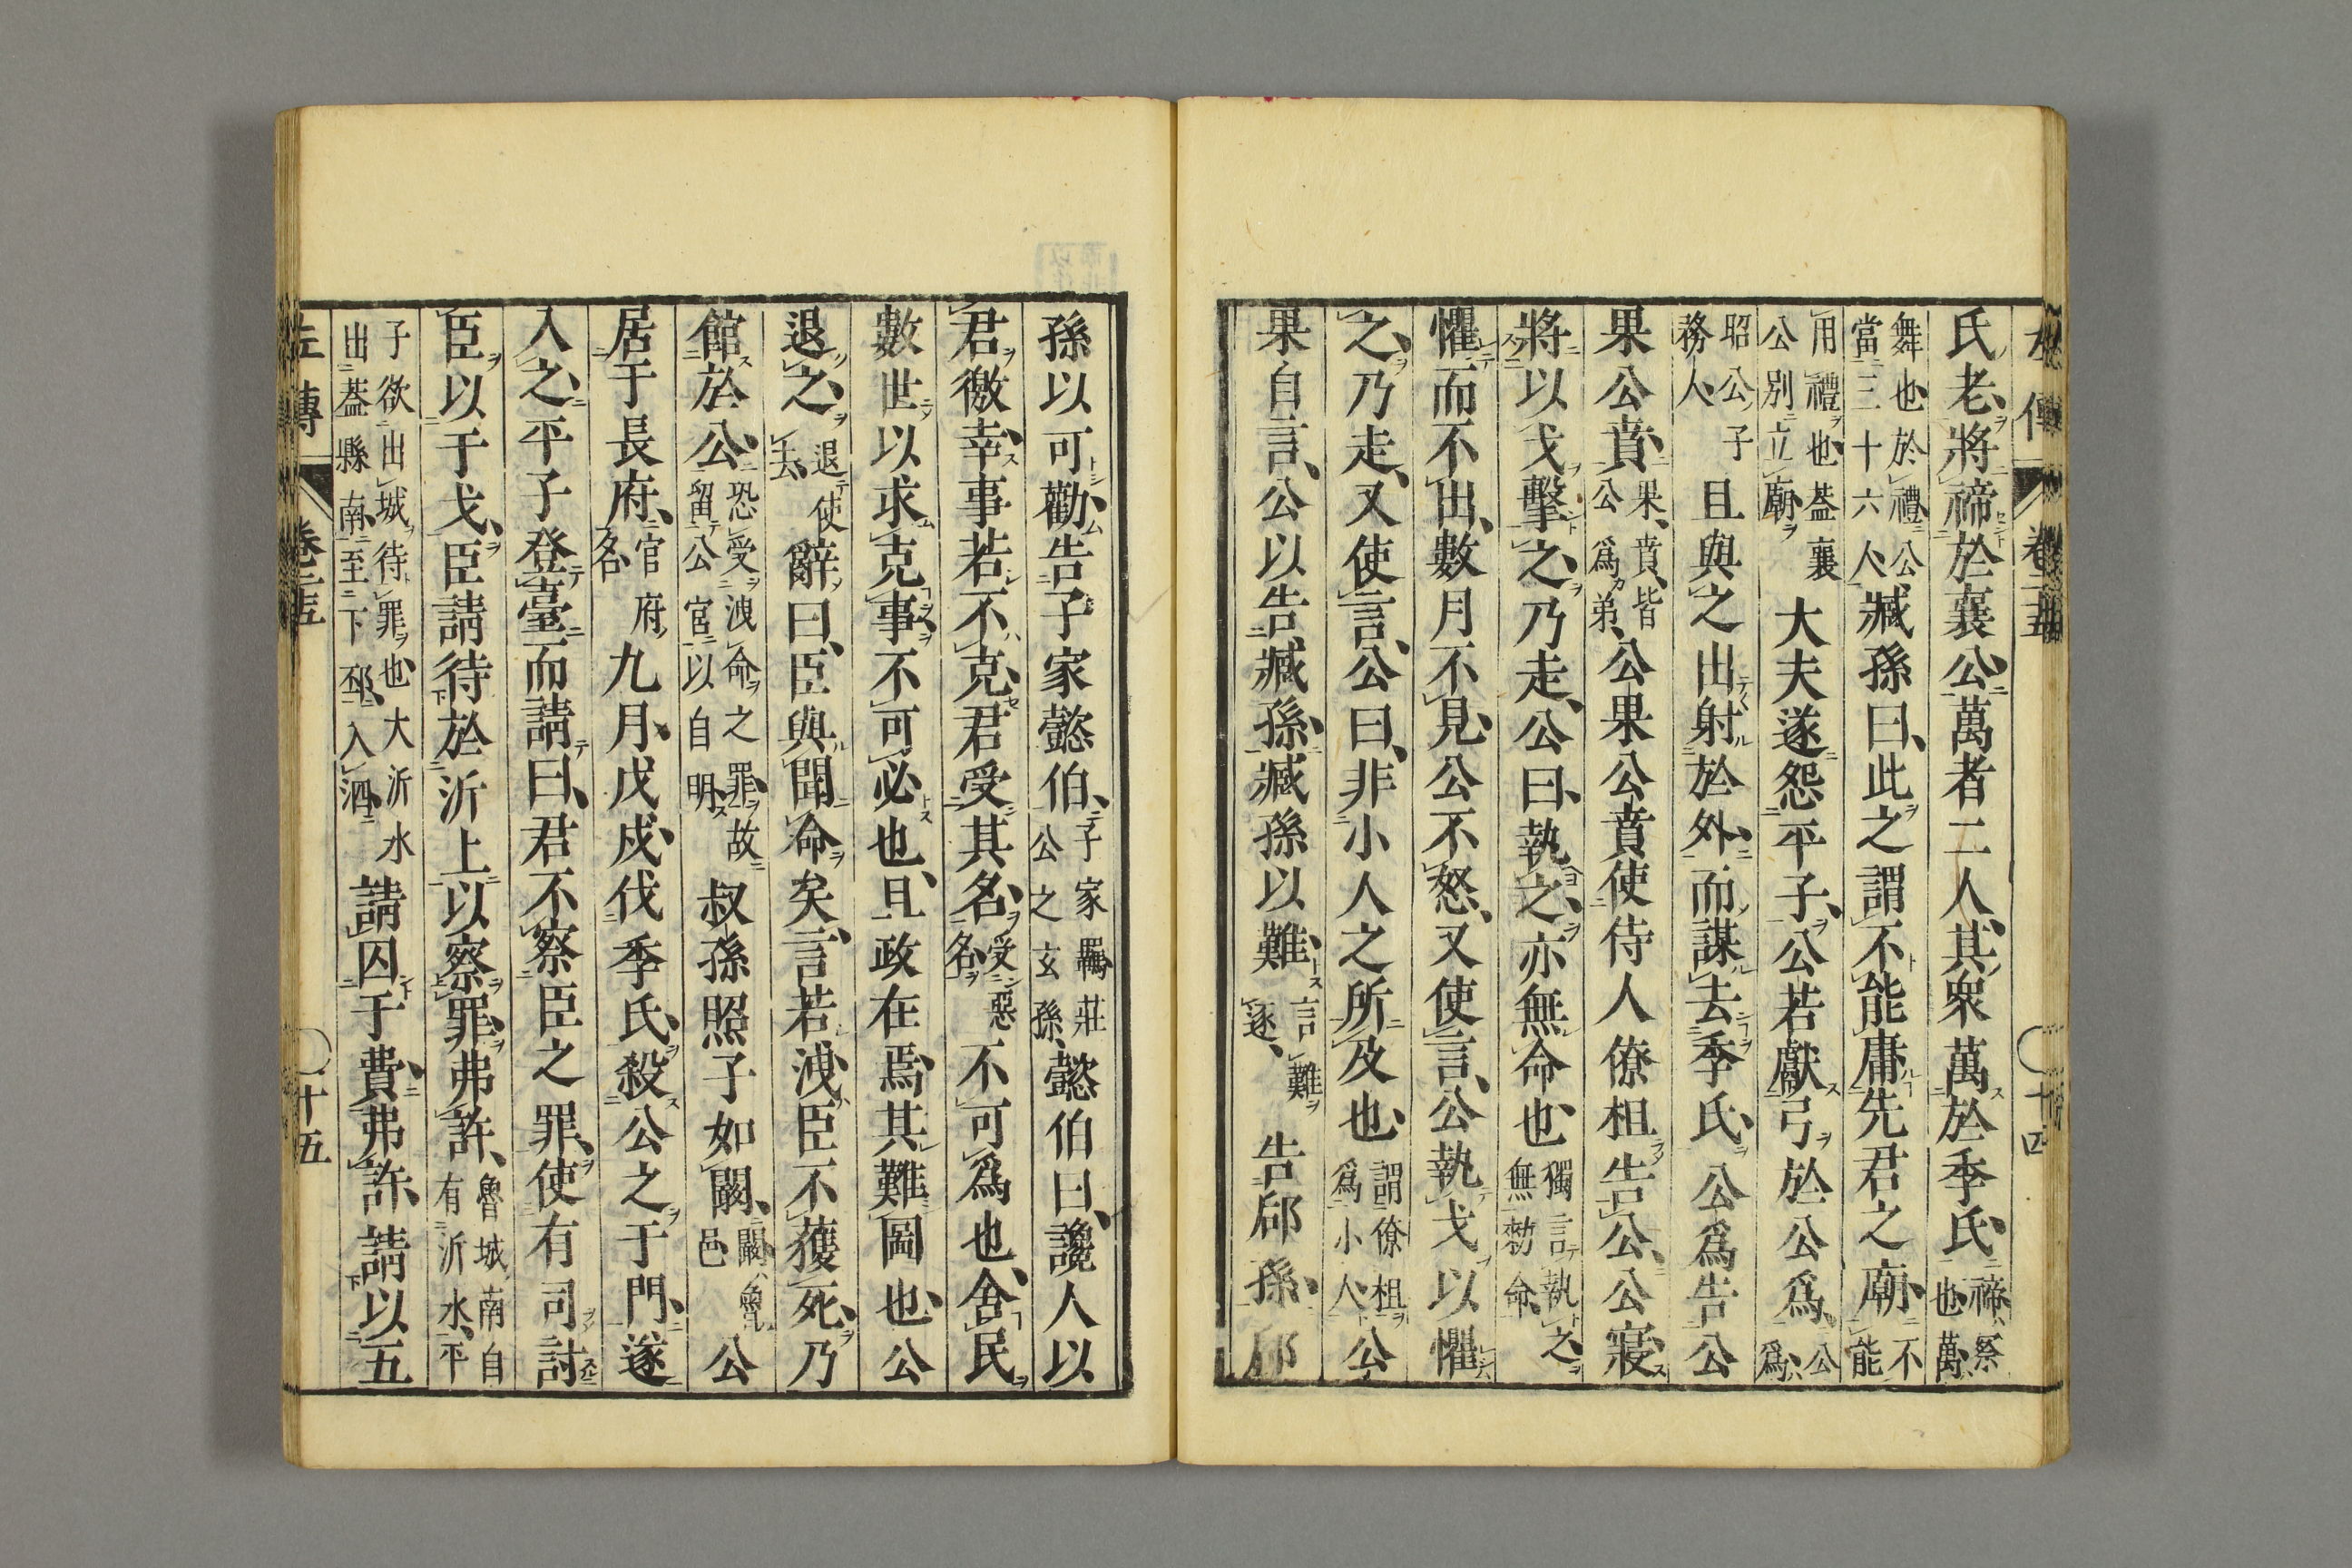 左傳 卷二十五 十四
氏老、將禘於襄公、萬者二人、其衆萬於季氏、禘、祭也、萬、
舞也、於禮公當三十六人、臧孫曰、此之謂不能庸先君之廟、不能
用禮也、葢襄公別立廟、大夫遂怨平子、公若獻弓於公爲、公爲、
昭公子務人、且與之出射於外、而謀去季氏、公爲告公
果公賁、果、賁、皆公爲弟、公果公賁使侍人僚柤告公、公寢
將以戈擊之、乃走、公曰、執之、亦無命也、獨言執之、無勑命、
懼而不出、數月不見、公不怒、又使言、公執戈以懼
之、乃走、又使言、公曰、非小人之所及也、謂僚柤爲小人、公
果自言、公以告臧孫、臧孫以難、言難逐、告郈孫、郈
孫以可勸、告子家懿伯、子家羈、莊公之玄孫、懿伯曰、讒人以
君徼幸、事若不克、君受其名、受惡名、不可爲也、舍民
數世、以求克事、不可必也、且政在焉、其難圖也、公
退之、退使去、辭曰、臣與聞命矣、言若洩、臣不獲死、乃
館於公、恐受洩命之罪、故留公宮以自明、叔孫昭子如闞、闞、魯邑、公
居于長府、官府名、九月、戊戌、伐季氏、殺公之于門、遂
入之、平子登臺而請曰、君不察臣之罪、使有司討
臣以干戈、臣請待於沂上以察罪、弗許、魯城南自有沂水、平
子欲出城待罪也、大沂水出葢縣南、至下邳、入泗、請囚于費、弗許、請以五
左傳 卷二十五 十五